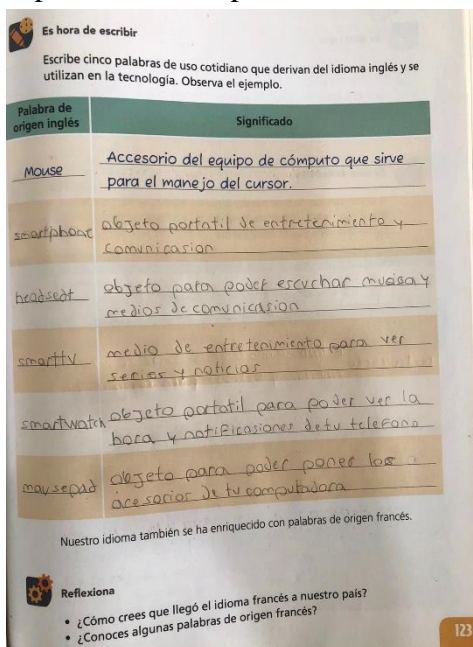 Es hora de escribir
Escribe cinco palabras de uso cotidiano que derivan del idioma inglés y se
utilizan en la tecnología. Observa el ejemplo.
Palabra de
origen inglés
Significado
Mouse
Accesorio del equipo de cómputo que sirve
para el manejo del cursor.
smartphone
objeto portatil de entretenimiento y
comunicasion
headseat
objeto para poder escuchar y
medios de comunicasion
smarttv
medio de entretenimiento para ver
series y noticias
smartwatch
objeto portatil para poder ver la
hora y notificasiones de tu telefono
mausepad
objeto para poder poner los
acesorios de tu computadora
Nuestro idioma también se ha enriquecido con palabras de origen francés.
Reflexiona
• ¿Cómo crees que llegó el idioma francés a nuestro país?
• ¿Conoces algunas palabras de origen francés?
123